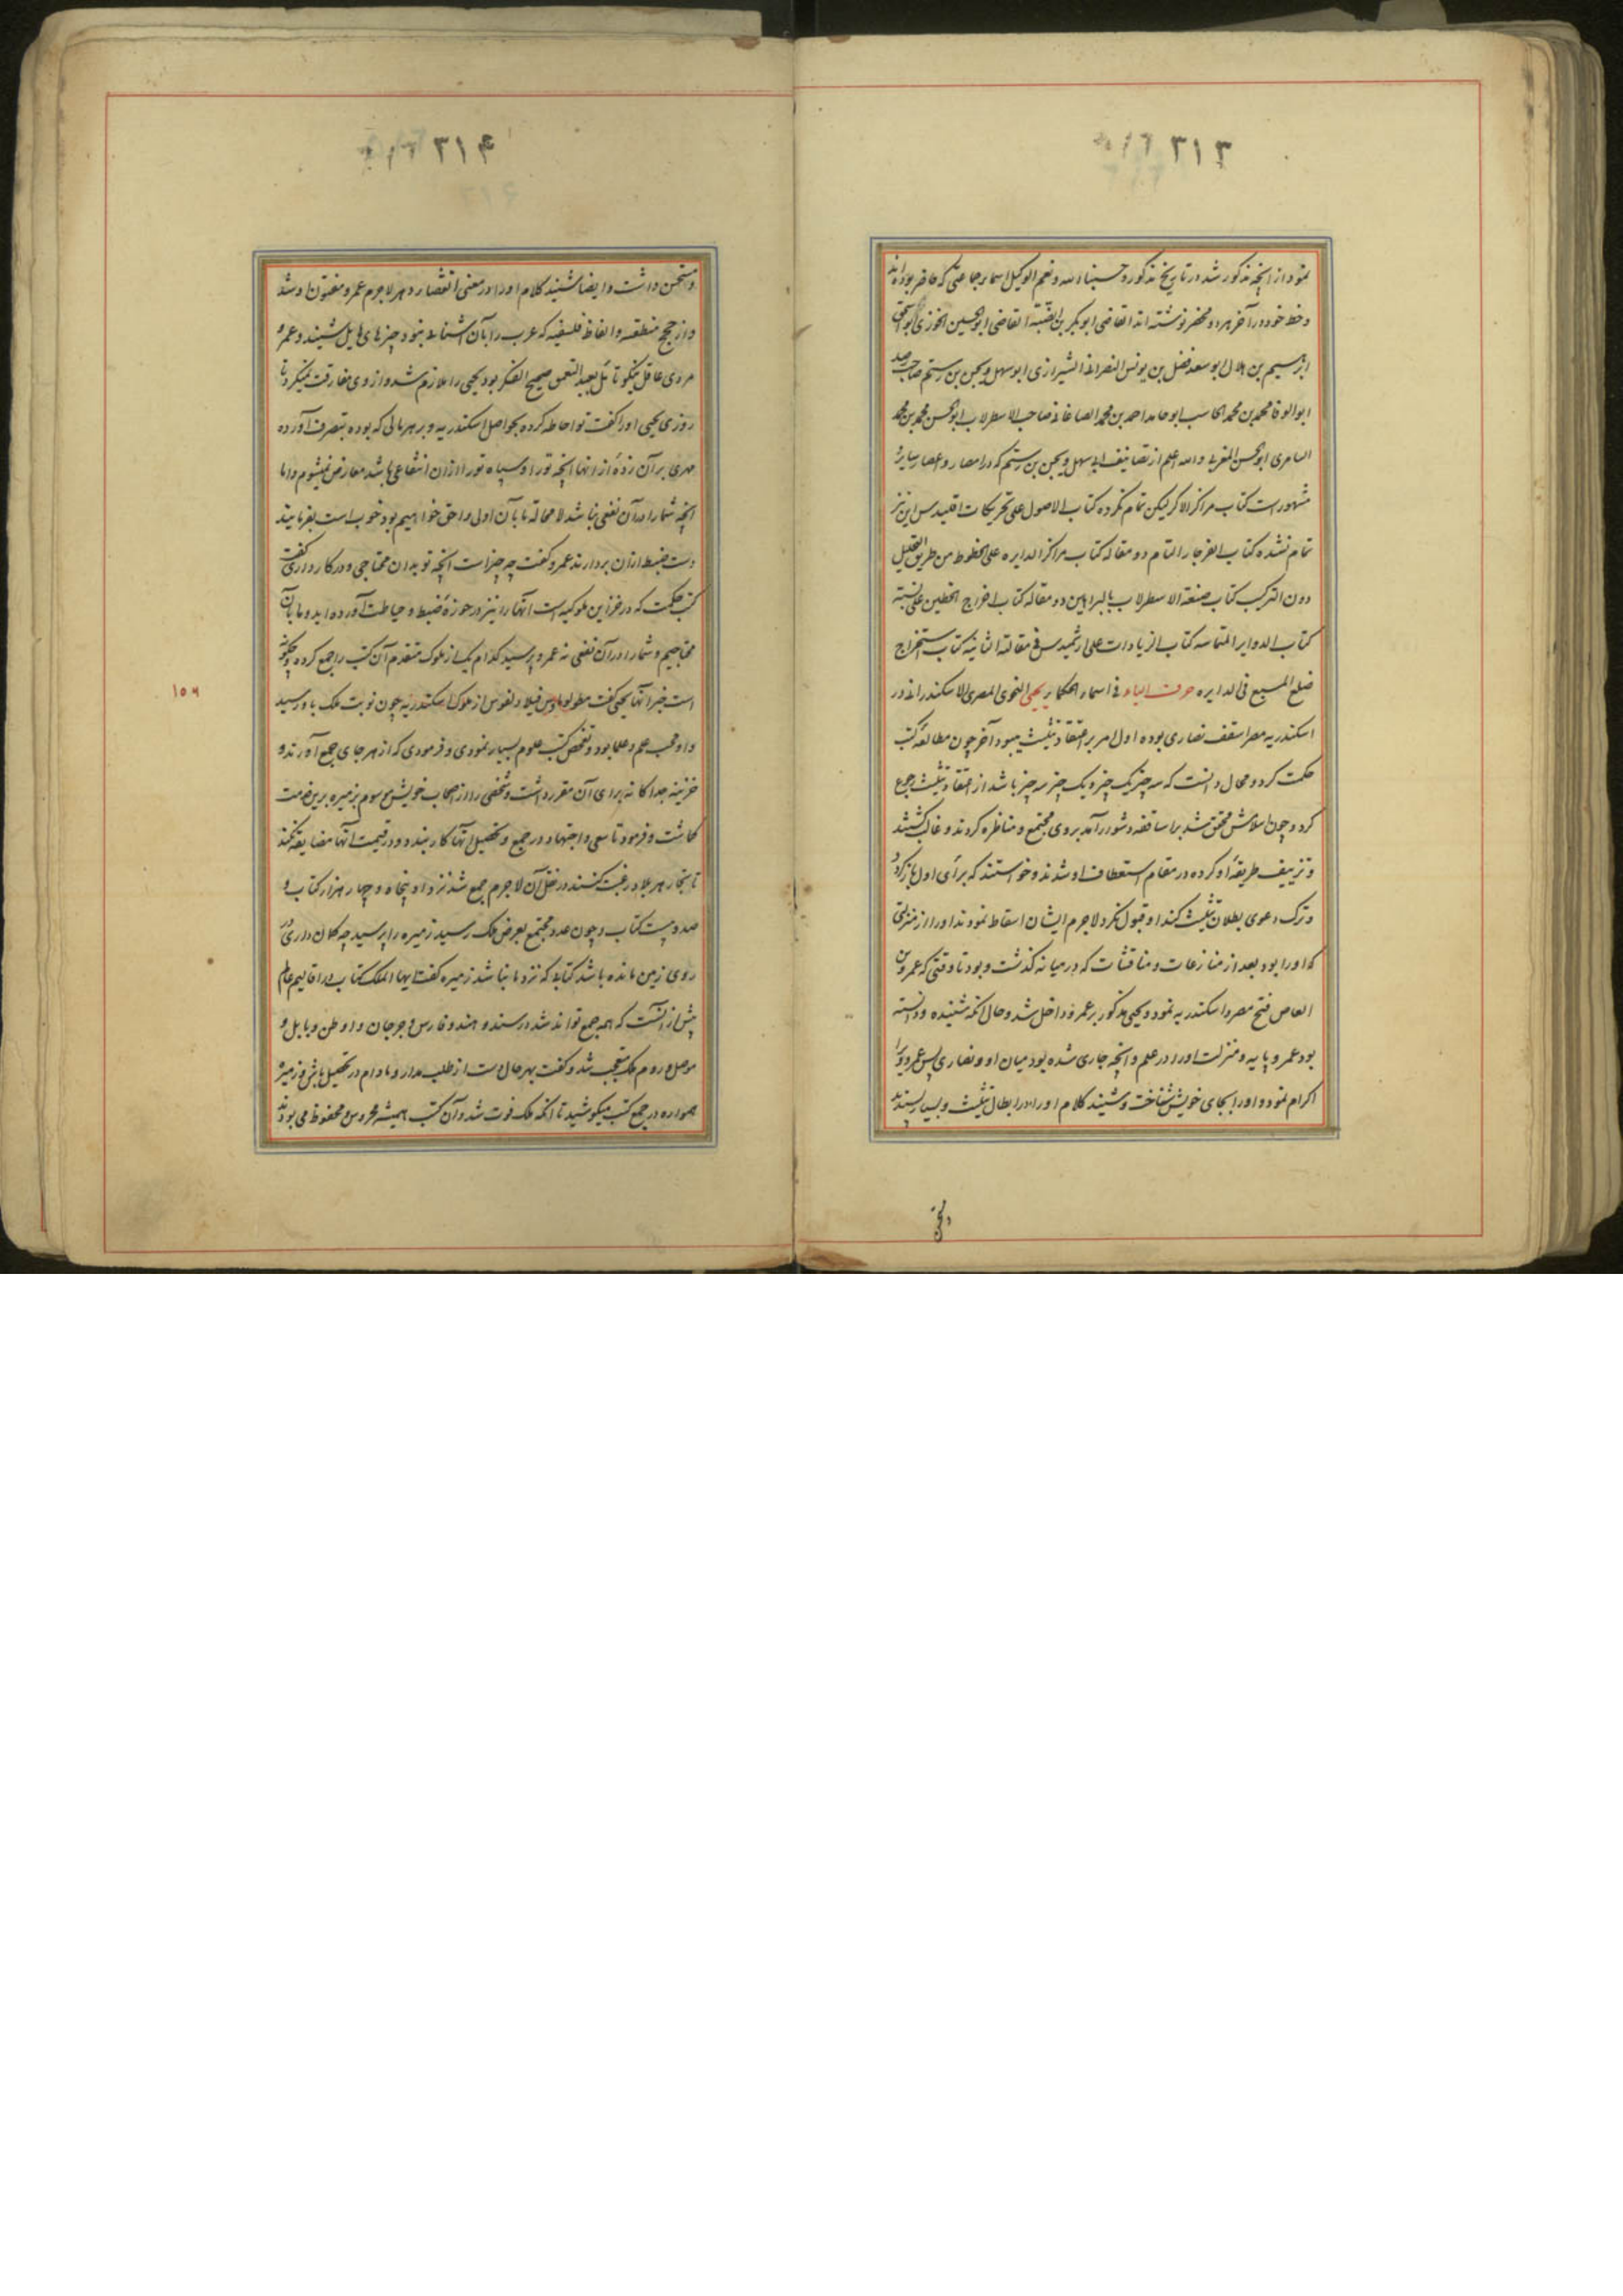 ۳۱۳
نمود از انچه مذکور شد در تاریخ مذکور و حسبنا الله و نعم الوکیل اسماء جماعتی که حاضر بوده‌اند
و خط خود در آخر هر دو محضر نوشته اند القاضی ابو بکر بن القاضی ابو الحسین الخوزی ابو اسحق
ابراهیم بن هلال ابو سعد فضل بن یونس النصرانی الشیرازی ابو سهل ویجن بن رستم صاحب رصد
ابو الوفا محمد بن محمد الحاسب ابو حامد احمد بن محمد الصاغانی صاحب الاسطرلاب ابو الحسن محمد بن محمد
السامری ابو الحسن المغربی و الله اعلم از تصانیف ابی سهل ویجن بن رستم که در امصار و اعصار سایر
مشهور است کتاب مراکز الاکر لیکن تمام نکرده کتاب الاصول علی تحریکات اقلیدس این نیز
تمام نشده کتاب الفرجار التام دو مقاله کتاب مراکز الدایره علی الخطوط من طریق التحلیل
دون الترکیب کتاب صنعة الاسطرلاب بالبراهین دو مقاله کتاب اخراج الخطین علی نسبته
کتاب الدوایر المتماسه کتاب الزیادات علی ارشمیدس فی مقالته الثانیه کتاب استخراج
ضلع المسبع فی الدایره حرف الیاء فی اسماء الحکماء یحیی النحوی المصری الاسکندرانی در
اسکندریه مصر اسقف نصاری بوده اول امر بر اعتقاد تثلیث میبود آخر چون مطالعه کتب
حکمت کرد و محال دانست که سه چیز یک چیز و یک چیز سه چیز باشد از اعتقاد تثلیث رجوع
کرد و چون اسلامش محقق شد بر اساقفه دشوار آمد بر وی مجتمع و مناظره کردند و غالب گشتند
و تزییف طریقه او کرده در مقام استعطاف او شدند و خواستند که برای اول باز گردد
و ترک دعوی بطلان تثلیث کند او قبول نکرد لاجرم ایشان اسقاط نمودند او را از منزلتی
که او را بود بعد از منازعات و مناقشات که در میانه گذشت و بود تا وقتی که عمرو بن
العاص فتح مصر و اسکندریه نمود و یحیی مذکور بر عمرو داخل شد و حال آنکه شنیده و دانسته
بود عمرو پایه و منزلت او را در علم و انچه جاری شده بود میان او و نصاری پس عمرو وی را
اکرام نمود و او را بجای خویش شناخت و شنید کلام او را در ابطال تثلیث و بسیار پسندید
۳۱۴
و مستحسن داشت و ایضا شنید کلام او را در معنی انقضاء دهر لاجرم عمرو مفتون او شد
و از حجج منطقیه و الفاظ فلسفیه که عرب را بآن آشنائی نبود چیزهای هایل شنید و عمرو
مردی عاقل نیکو تأمل بعید التعمق صحیح الفکر بود یحیی را ملازم شد و از وی مفارقت نمیکرد تا
روزی یحیی او را گفت تو احاطه کرده بحواصل اسکندریه و بر هر مالی که بوده بتصرف آورده
مهری بر آن زده از انها انچه تو را و سپاه تو را از ان انتفاعی باشد معارض نمیشوم و اما
انچه شما را در آن نفعی نباشد لا محاله ما بآن اولی و احق خواهیم بود خوب است بفرمایید
دست ضبط از ان بردارند عمرو گفت چه چیز است انچه تو بدان محتاجی و در کار داری گفت
کتب حکمت که در خزاین ملوکیه است آنها را نیز در حوزه ضبط و حیاطت آورده اید و ما بآن
محتاجیم و شما را در آن نفعی نه عمرو پرسید کدام یک از ملوک متقدم آن کتب را جمع کرده و چگونه
است خبر انها یحیی گفت بطولوماوس فیلادلفوس از ملوک اسکندریه چون نوبت ملک باو رسید
و او محب علم و علما بود و تفحص کتب علوم بسیار نمودی و فرمودی که از هر جای جمع آورند و
خزینه جداگانه برای آن مقرر داشت و شخصی را از اصحاب خویش موسوم بزمیره برین خدمت
گماشت و فرمود تا سعی و اجتهاد در جمع و تحصیل آنها کار بندد و در قیمت انها مضایقه نکند
تا تجار هر بلاد رغبت کنند در نقل آن لاجرم جمع شد نزد او پنجاه و چهار هزار کتاب و
صد و بیست کتاب و چون عدد مجتمع بعرض ملک رسید زمیره را پرسید چه گمان داری در
روی زمین مانده باشد کتابی که نزد ما نباشد زمیره گفت ایها الملک کتاب در اقالیم عالم
بیش از آنست که همه جمع تواند شد در سند و هند و فارس و جرجان و اوطن و بابل و
موصل و روم ملک متعجب شد و گفت بهر حال دست از طلب مدار و مادام در تحصیل باش و زمیره
همواره در جمع کتب میکوشید تا انکه ملک فوت شد و آن کتب همیشه محروس و محفوظ می بودند